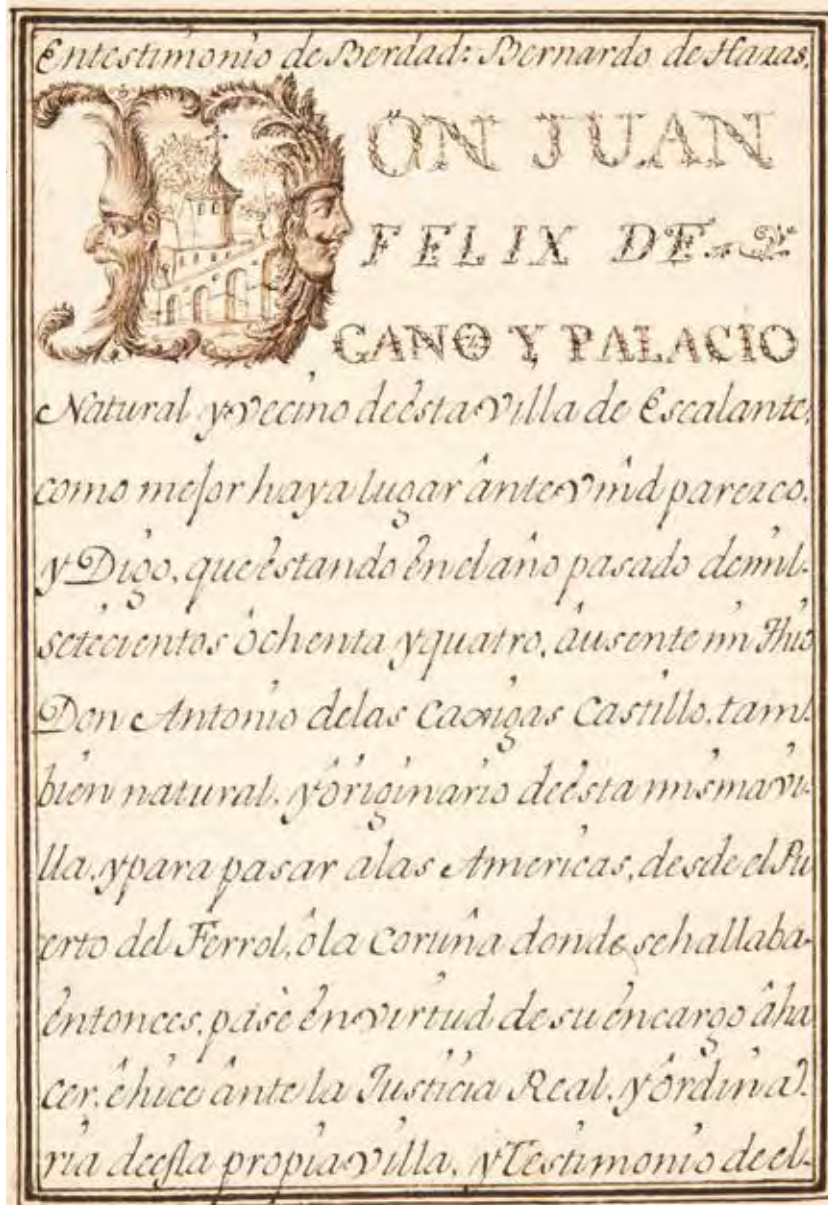 Entestimonio de Berdad: Bernardo de Hazas,
DON JUAN
FELIX DE
CANO Y PALACIO
Natural y vecino deésta villa de Escalante,
como mejor haya lugar ânte Vmd parezco,
y Digo, que êstando ên el año pasado demil
setecientos ôchenta y quatro, âusente mi Hijo
Don Antonio delas Caxigas Castillo, tam-
bien natural, y ôriginario deésta misma vi-
lla, y para pasar alas Americas, desde el Pu
erto del Ferrol, ô la Coruña donde se hallaba
êntonces, pasè ên virtud de su êncargo âha
cer, ê hice ânte la Justicia Real, y ôrdina-
ria deesta propia villa, y Testimonio de el